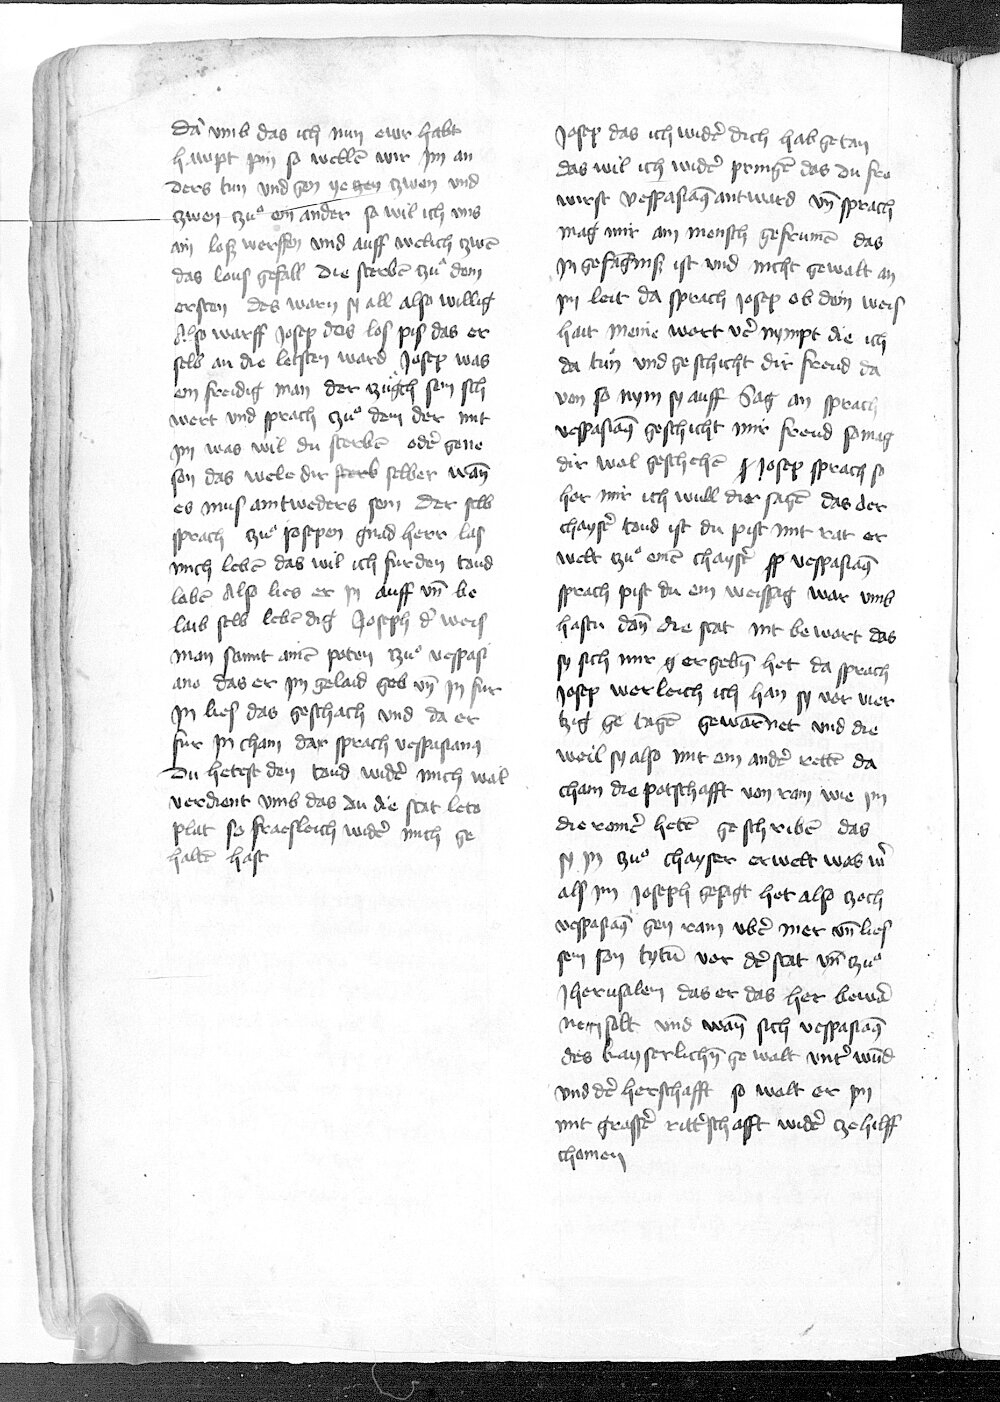 Dar vmb das ich nun ewr habt
hawpt pin so wellē wir jm an
ders tun vnd gen ye gen zwen vnd
zwen czuͦ ein ander so wil ich vns
ain losz werffen vnd auff welich zwē
das lous gefall die sterbē czuͦ dem
ersten des warn sy all also willig
Also warff josep das los pis das er
selb an die letsten ward josep was
ein freidig man der zugch sein sch
wert vnd sprach czuͦ dem der mit
jm was wil du sterbē oder gene
sen das wele dir selber wan̄
es mus aintweders sein Der selb
sprach czuͦ josepen gnad herr las
mich lebē das wil ich fur den toud
lobē Also lies er jn auff vn̄ be
laib selb lebē dig Joseph d' weis
man sannt ainē poten czuͦ vespasi
ano das er jm gelaid geb vn̄ jn fur
jn lies das geschach vnd da er
fur jn cham dar sprach vespasianus
Du hetest den toud wid' mich wol
verdient vmb das du die stat lota
plat so fraesleich wid' mich ge
haltē hast
Josep das ich wid' dich hab getan
das wil ich wid' pringē das du fro
wirst vespasian9 antward vn̄ sprach
mag mir ain mensch gefrumē das
jn gefāgnusz ist vnd nicht gewalt an
jm leit da sprach josep ob dein weis
hait meine wort v'nympt die ich
da tun vnd geschicht dir freud da
von so nym sy auff Sag an sprach
vespasian9 geschicht mir freud so mag
dir wol geschehē josep sprach so
hor mir ich will dier sagē das der
chays' toud ist du pist mit rat er
welt czuͦ einē chays' vespasian9
sprach pist du ein weissag war vmb
hastu dan̄ die stat nit bewart das
sy sich mir ergebn̄ het da sprach
josep werleich ich han sy vor vier
tzig ge tagē gewarnet vnd die
weil sy also mit ein and' rettē da
cham die potschafft von ram wie jm
die rom' hetē geschribē das
sy jn czuͦ chayser erwelt was w'
als jm joseph gesagt het also zoch
vespasian9 gen ram vb' mer vn̄ lies
sein son tytū vor d' stat vn̄ czuͦ
Jherusalem das er das her bewa
nern solt vnd wan̄ sich vespasian9
des kayserlichn̄ gewalt vnt' wūd
vnd d' herschafft so wolt er jm
mit gross' ritt'schafft wid' ze hilff
chomen